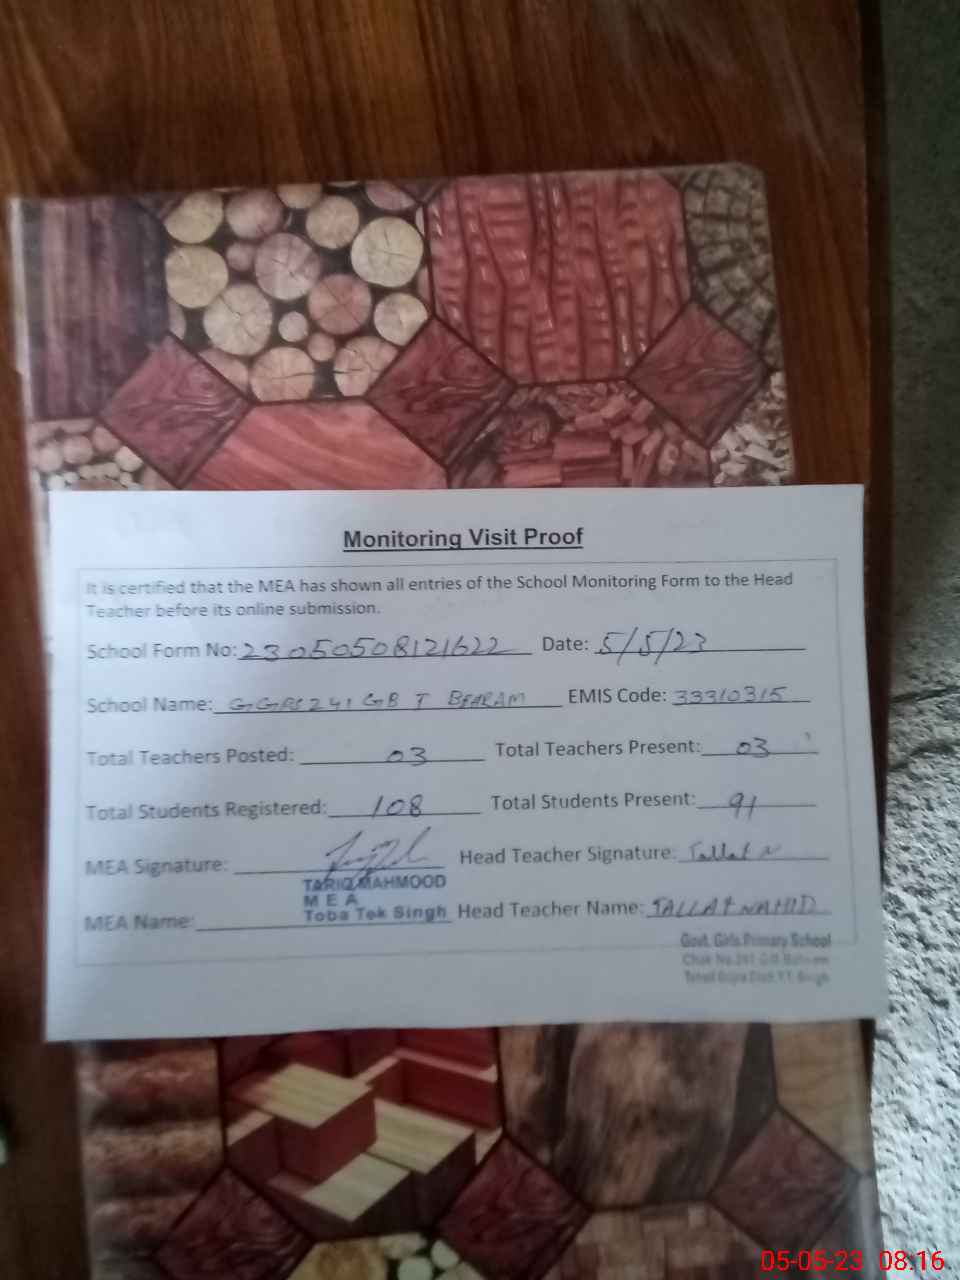 Monitoring Visit Proof
It is certified that the MEA has shown all entries of the School Monitoring Form to the Head
Teacher before its online submission.
School Form No: 23050508121622 Date: 5/5/23
School Name: GGPS 241 GB T BEHRAM EMIS Code: 33310315
Total Teachers Posted: 03 Total Teachers Present: 03
Total Students Registered: 108 Total Students Present: 91
MEA Signature: Head Teacher Signature: Tallat N
TARIQ MAHMOOD
M E A
MEA Name: Toba Tek Singh Head Teacher Name: TALLAT NAHID
Govt. Girls Primary School
Chak No.241 G.B
05-05-23 08:16